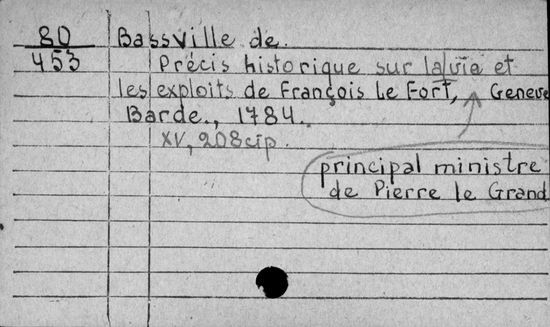 80 Bassville de.
453 Précis historique sur la vie et
les exploits de François Le Fort, Geneve
Barde., 1784.
XV, 208 cip.
principal ministre
de Pierre le Grand